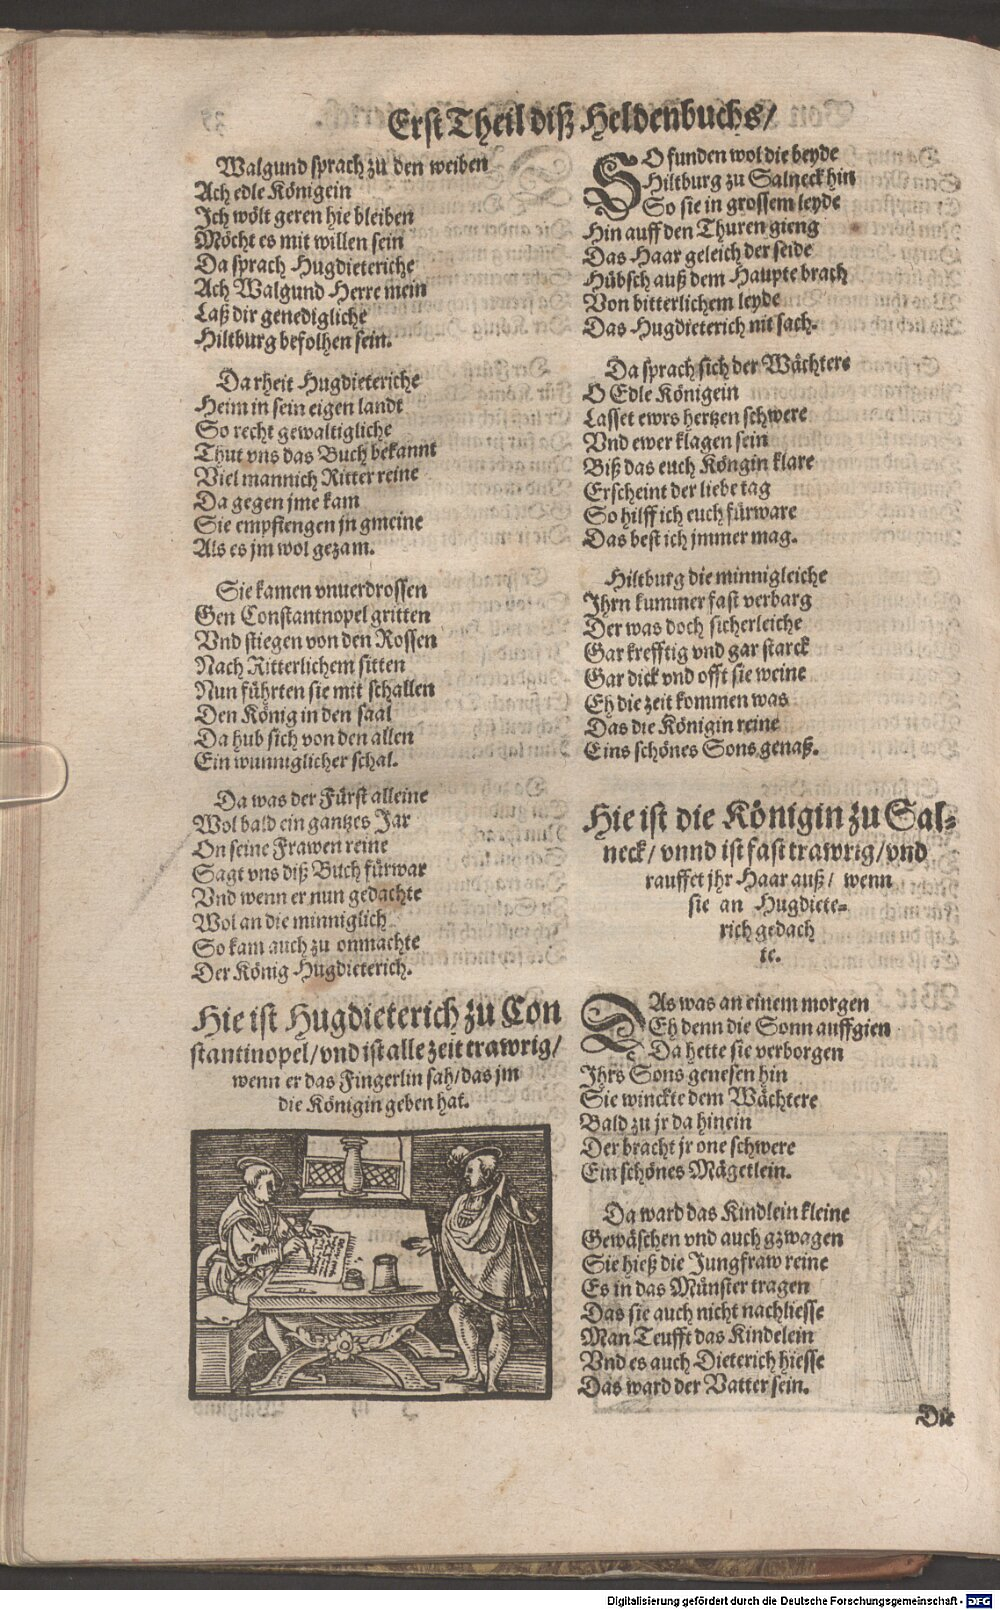 Erst Theil diß Heldenbuchs/
Walgund sprach zu den weiben
Ach edle Königein
Ich wölt geren hie bleiben
Möcht es mit willen sein
Da sprach Hugdieteriche
Ach Walgund Herre mein
Laß dir genedigliche
Hiltburg befolhen sein.
Da rheit Hugdieteriche
Heim in sein eigen landt
So recht gewaltigliche
Thut vns das Buch bekannt
Viel mannich Ritter reine
Da gegen jme kam
Sie empfiengen jn gmeine
Als es jm wol gezam.
Sie kamen vnuerdrossen
Gen Constantnopel gritten
Vnd stiegen von den Rossen
Nach Ritterlichem sitten
Nun führten sie mit schallen
Den König in den saal
Da hub sich von den allen
Ein wunniglicher schal.
Da was der Fürst alleine
Wol bald ein gantzes Jar
On seine Frawen reine
Sagt vns diß Buch fürwar
Vnd wenn er nun gedachte
Wol an die minniglich
So kam auch zu onmachte
Der König Hugdieterich.
Hie ist Hugdieterich zu Con
stantinopel/ vnd ist alle zeit trawrig/
wenn er das Fingerlin sah/ das jm
die Königin geben hat.
SO funden wol die beyde
Hiltburg zu Salneck hin
So sie in grossem leyde
Hin auff den Thuren gieng
Das Haar geleich der seide
Hübsch auß dem Haupte brach
Von bitterlichem leyde
Das Hugdieterich nit sach.
Da sprach sich der Wächtere
O Edle Königein
Lasset ewrs hertzen schwere
Vnd ewer klagen sein
Biß das euch Köngin klare
Erscheint der liebe tag
So hilff ich euch fürware
Das best ich jmmer mag.
Hiltburg die minnigleiche
Ihrn kummer fast verbarg
Der was doch sicherleiche
Gar krefftig vnd gar starck
Gar dick vnd offt sie weine
Eh die zeit kommen was
Das die Königin reine
Eins schönes Sons genaß.
Hie ist die Königin zu Sal-
neck/ vnnd ist fast trawrig/ vnd
rauffet jhr Haar auß/ wenn
sie an Hugdiete-
rich gedach
te.
DAs was an einem morgen
Eh denn die Sonn auffgien
Da hette sie verborgen
Ihrs Sons genesen hin
Sie winckte dem Wächtere
Bald zu jr da hinein
Der bracht jr one schwere
Ein schönes Mägetlein.
Da ward das Kindlein kleine
Gewäschen vnd auch gzwagen
Sie hieß die Jungfraw reine
Es in das Münster tragen
Das sie auch nicht nachliesse
Man Teufft das Kindelein
Vnd es auch Dieterich hiesse
Das ward der Vatter sein.
Die
Digitalisierung gefördert durch die Deutsche Forschungsgemeinschaft - DFG